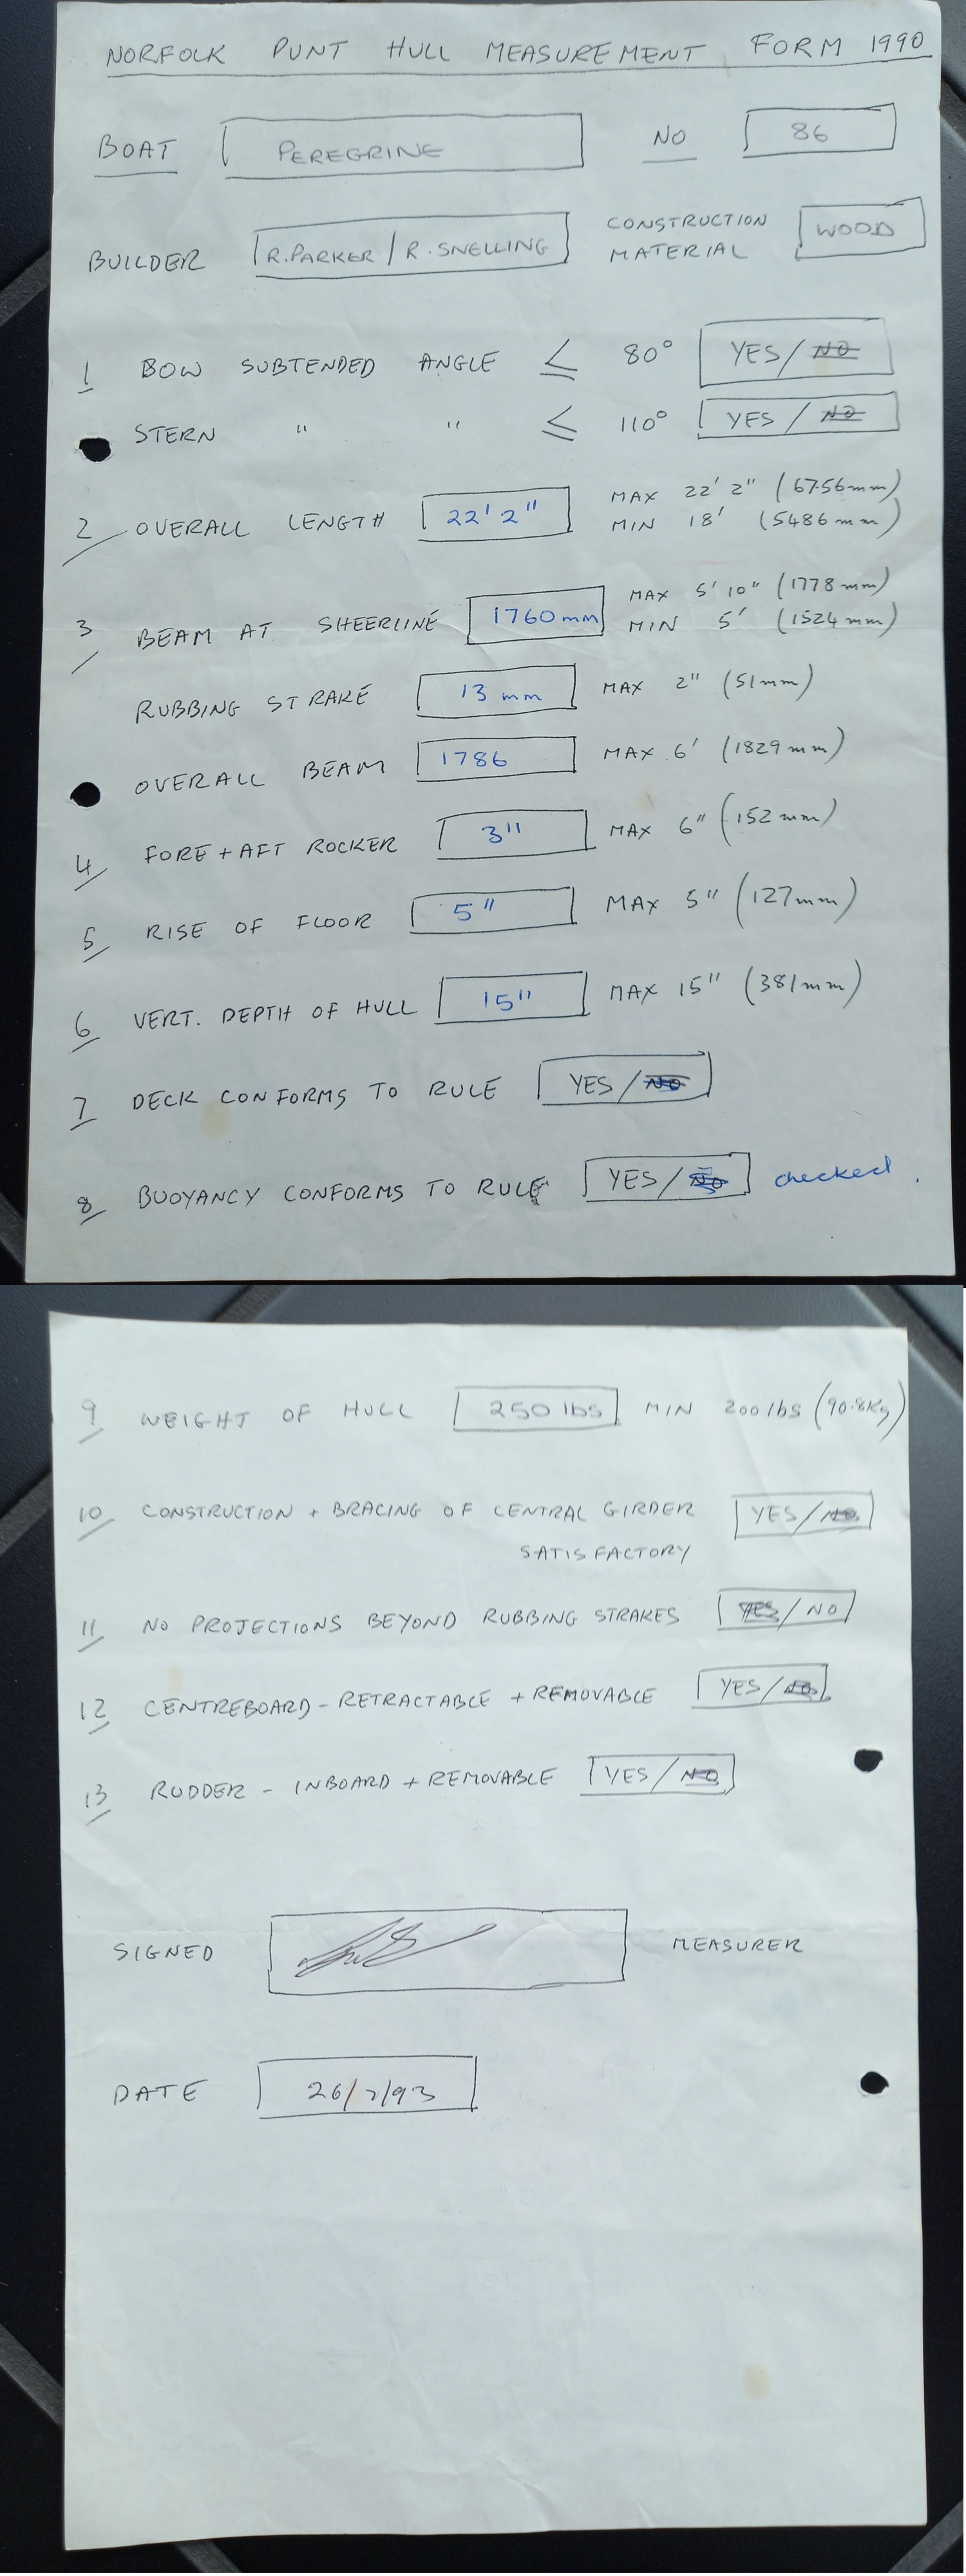 NORFOLK PUNT HULL MEASUREMENT FORM 1990
BOAT PEREGRINE NO 86
BUILDER R.PARKER / R.SNELLING CONSTRUCTION MATERIAL WOOD
1 BOW SUBTENDED ANGLE ≤ 80° YES / NO
STERN " " ≤ 110° YES / NO
2 OVERALL LENGTH 22' 2" MAX 22' 2" (6756mm)
MIN 18' (5486mm)
3 BEAM AT SHEERLINE 1760mm MAX 5' 10" (1778mm)
MIN 5' (1524mm)
RUBBING STRAKE 13 mm MAX 2" (51mm)
OVERALL BEAM 1786 MAX 6' (1829mm)
4 FORE + AFT ROCKER 3" MAX 6" (152mm)
5 RISE OF FLOOR 5" MAX 5" (127mm)
6 VERT. DEPTH OF HULL 15" MAX 15" (381mm)
7 DECK CONFORMS TO RULE YES / NO
8 BUOYANCY CONFORMS TO RULE YES / NO checked.
9 WEIGHT OF HULL 250 lbs MIN 200 lbs (90.8Kg)
10 CONSTRUCTION + BRACING OF CENTRAL GIRDER YES / NO
SATISFACTORY
11 NO PROJECTIONS BEYOND RUBBING STRAKES YES / NO
12 CENTREBOARD - RETRACTABLE + REMOVABLE YES / NO
13 RUDDER - INBOARD + REMOVABLE YES / NO
SIGNED MEASURER
DATE 26/7/93